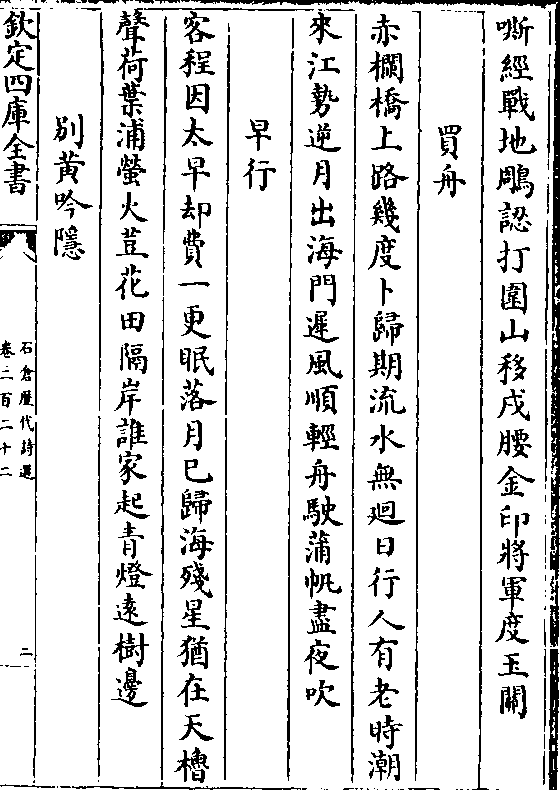 嘶經戰地鵰認打圍山移戍腰金印將軍度玉關
買舟
赤欄橋上路幾度卜歸期流水無廻日行人有老時潮
來江勢逆月出海門遲風順輕舟駛蒲帆盡夜吹
早行
客程因太早却費一更眠落月巳歸海殘星猶在天櫓
聲荷葉浦螢火荳花田隔岸誰家起青燈遠樹邊
别黄吟隱
欽定四庫全書
石倉歴代詩選
卷二百二十二
二